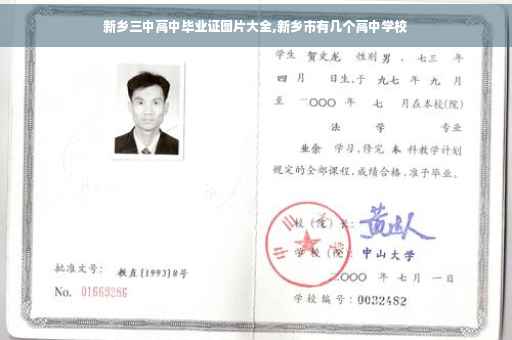 新乡三中高中毕业证图片大全,新乡市有几个高中学校
学生 贺文龙 性别 男 ，七三 年
四 月 日生,于 九七 年 九 月
至 二〇〇〇 年 七 月在本校(院)
法 学 专业
业余 学习,修完 本 科教学计划
规定的全部课程,成绩合格,准予毕业。
校（院）长:
学 校（院）: 中山大学
二〇〇〇 年 七 月 一 日
学校编号: 0032482
批准文号: 教直[1993]8号
No. 01669286